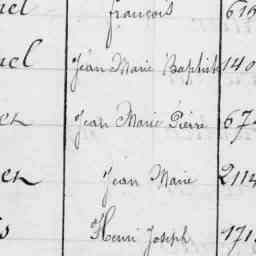 uel françois 616
uel Jean Marie Baptiste 140
en Jean Marie Pierre 674
en Jean Marie 2114
is Henri Joseph 171